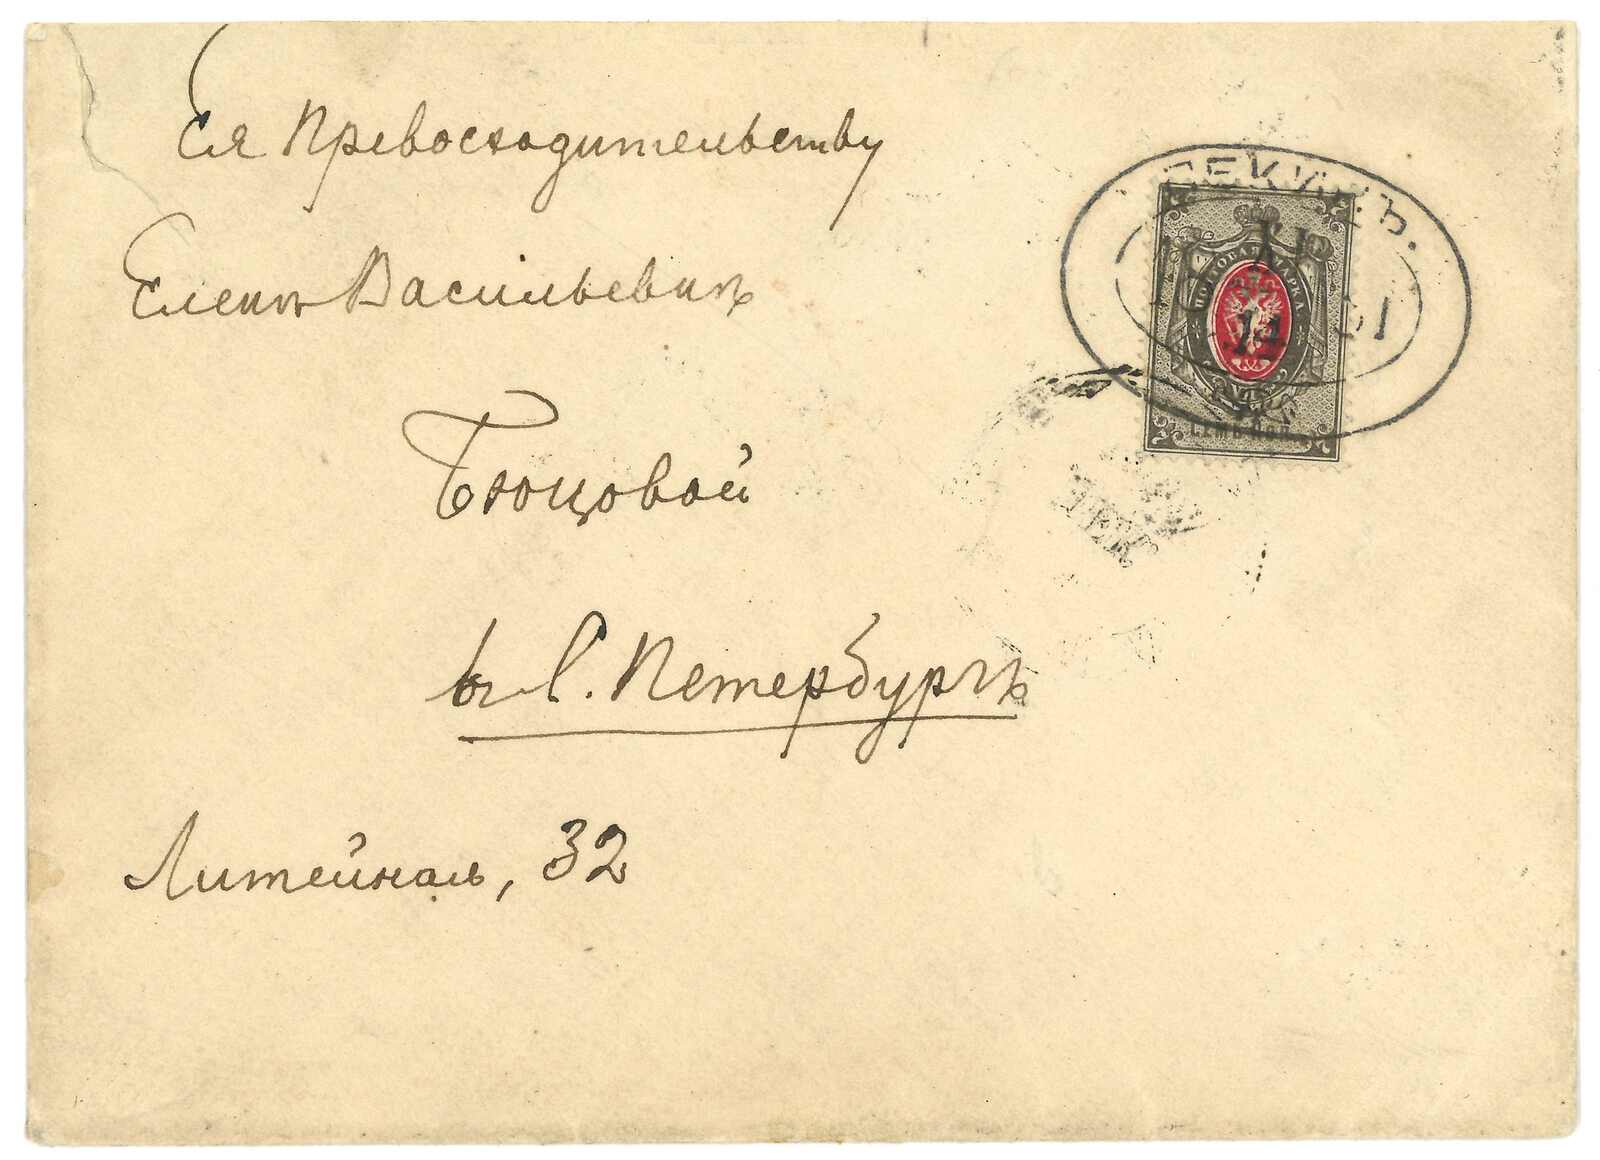 Ея Превосходительству
Еленѣ Васильевнѣ
Бюцовой
въ С. Петербургѣ
Литейная, 32
ПЕКИНЪ.
14
ПОЧТОВАЯ МАРКА
СЕМЬ КОП.